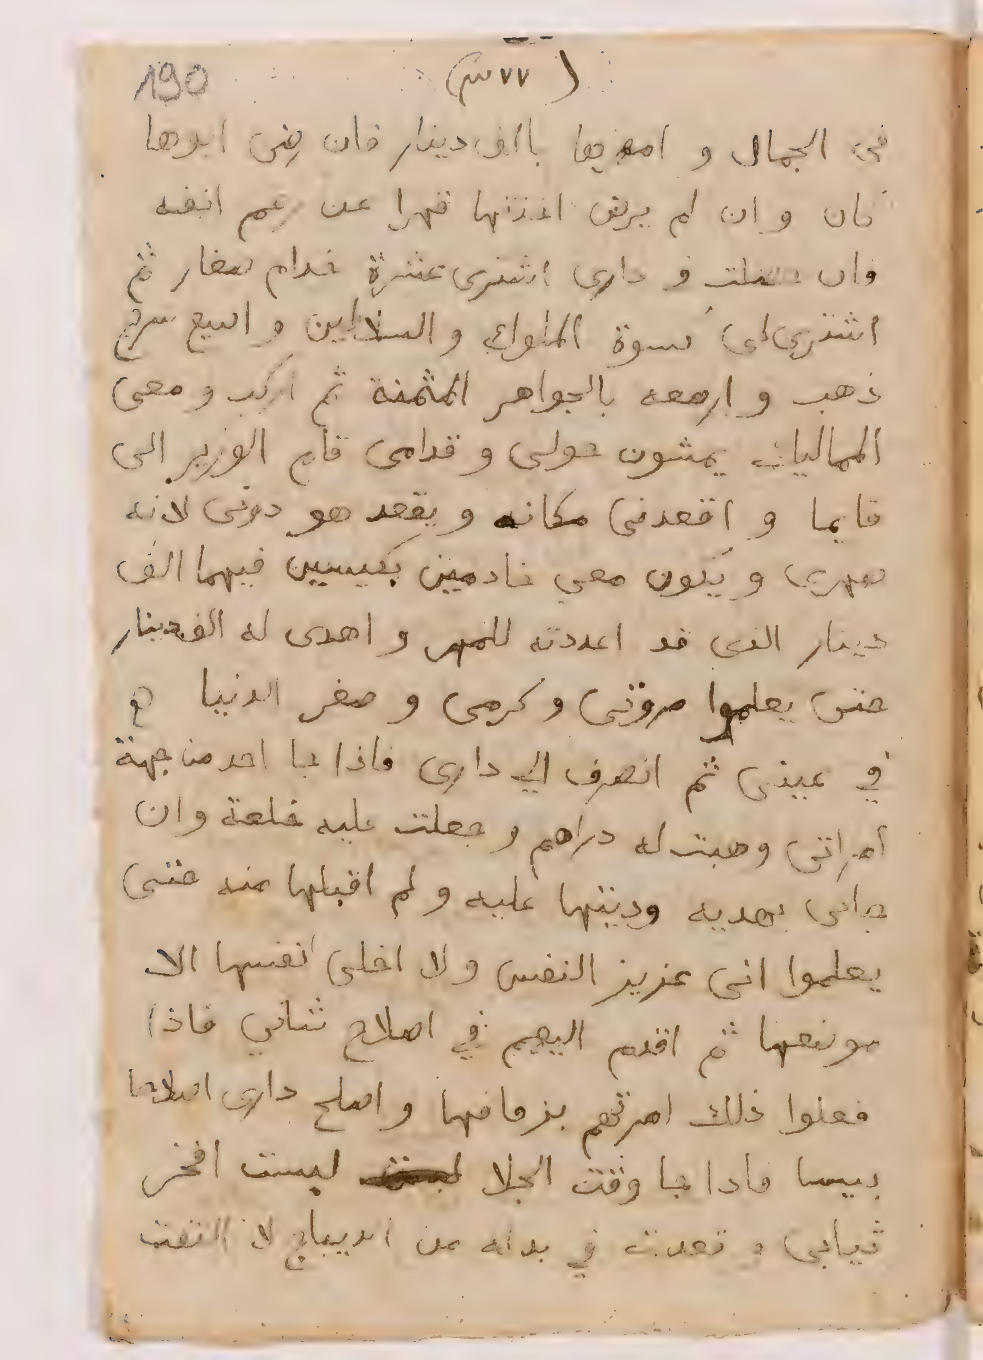 190 (٧٧س)
في الجمال و امهرها باالف دينار فان رضى ابوها
كان و ان لم يرض اخذتها قهرا عن رغم انفه
وان حصلت في دارى اشترى عشرة خدام صغار ثم
اشترى لى كسوة الملوك والسلاطين و اصيغ سرج
ذهب و ارصعه بالجواهر المثمنة ثم اركب و معى
المماليك يمشون حولى و قدامى قام الوزير الى
قايما و اقعدنى مكانه و يقعد هو دونى لانه
صهرى و يكون معي خادمين بكيسين فيهما الف
دينار الذى قد اعددته للمهر و اهدى له الف دينار
حتى يعلموا مروتى و كرمى و صغر الدنيا
في عينى ثم انصرف الي دارى فاذا جا احد من جهة
امراتى وهبت له دراهم و جعلت عليه خلعة وان
جانى بهديه ورديتها عليه و لم اقبلها منه حتى
يعلموا انى عزيز النفس ولا اخلى انفسها الا
موضعها ثم اقدم اليهم في اصلاح شاني فاذا
فعلوا ذلك امرتهم بزفافها و اصلح دارى اصلاحا
بيسا فاذا جا وقت الجلا لبست افخر
ثيابى و قعدت في بدله من الديباج لا التفت